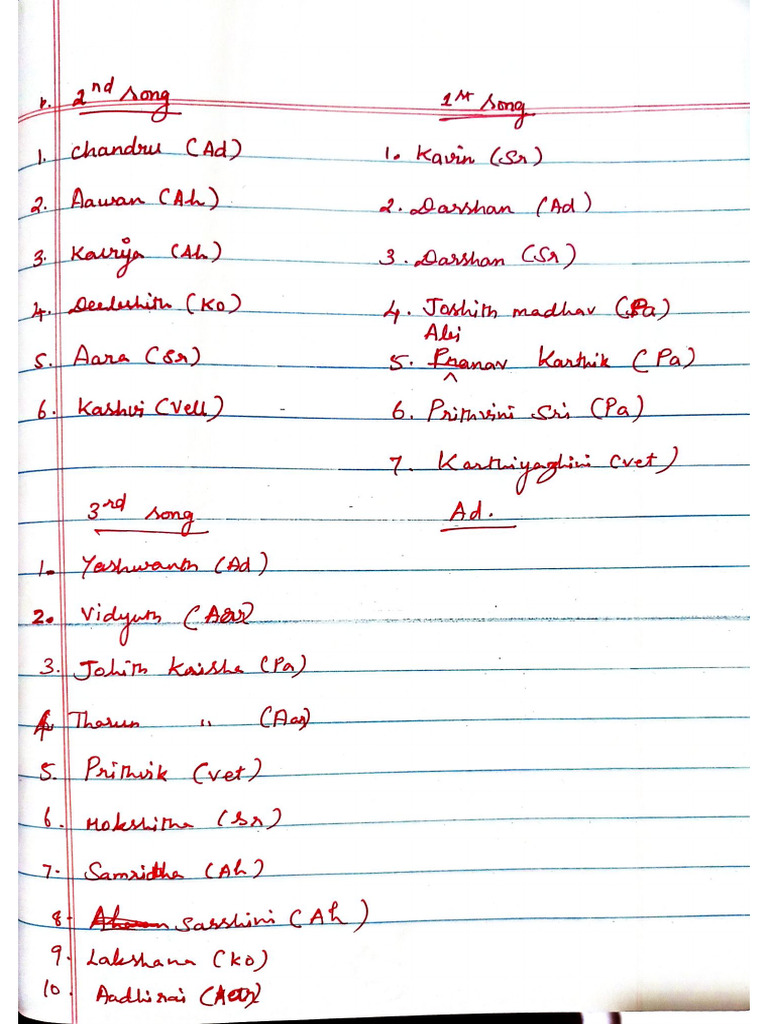 2nd song
1. Chandru (Ad)
2. Aawan (Ah)
3. (Ah)
4. Deeleshith (Ko)
5. Aara (Sr)
6. Kashvi (Vell)
1st song
1. Kavin (Sr)
2. Darshan (Ad)
3. Darshan (Sr)
4. Joshith madhav (Pa)
5. Pranav Karthik (Pa)
6. Prithvini Sri (Pa)
7. Karthiyaghini (vet)
Ad.
3rd song
1. Yashwanth (Ad)
2. Vidyuth (Aar)
3. Johith (Pa)
4. Tharun " (Aar)
5. Prithvik (vet)
6. Mokshitha (Sr)
7. Samridha (Ah)
8. Sarshini (Ah)
9. Lakshana (Ko)
10. Aadhirai (Aar)